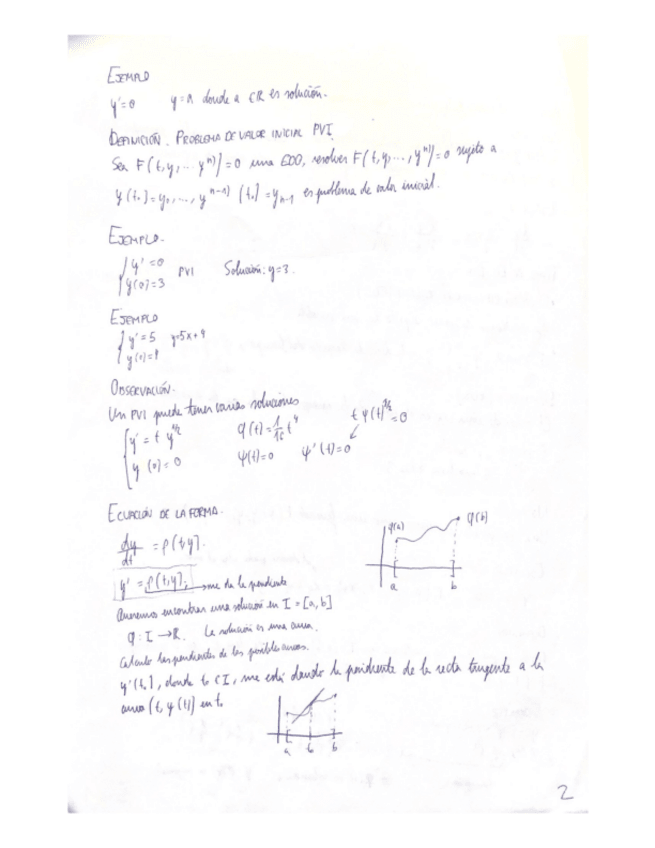 EJEMPLO
y'=0 y=a donde a ∈ℝ es solución.
DEFINICIÓN. PROBLEMA DE VALOR INICIAL PVI.
Sea F(t,y,...yⁿ⁾)=0 una EDO, resolver F(t,y,...,yⁿ⁾)=0 sujeto a
y(t₀)=y₀,...,yⁿ⁻¹⁾(t₀)=yₙ₋₁ es problema de valor inicial.
EJEMPLO.
y'=0
y(0)=3 PVI Solución: y=3.
EJEMPLO
y'=5 y=5x+9
y(0)=9
OBSERVACIÓN.
Un PVI puede tener varias soluciones
y'=t y^1/2 φ(t)=1/16 t⁴ t ψ(t)^1/2=0
y(0)=0 ψ(t)=0 ψ'(t)=0
ECUACIÓN DE LA FORMA.
dy/dt = f(t,y).
y'=f(t,y), me da la pendiente
Queremos encontrar una solución en I=[a,b]
φ: I→ℝ. La solución es una curva.
Calculo las pendientes de las posibles curvas.
y'(t₀), donde t₀ ∈ I, me está dando la pendiente de la recta tangente a la
curva (t, φ(t)) en t₀
φ(a) φ(b)
a b
a t₀ b
2